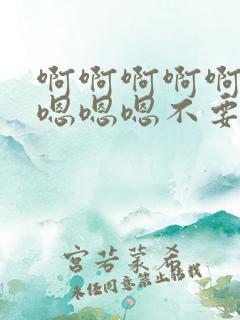 啊啊啊啊啊
嗯嗯嗯不要
宫若菜希
未经同意禁止转载